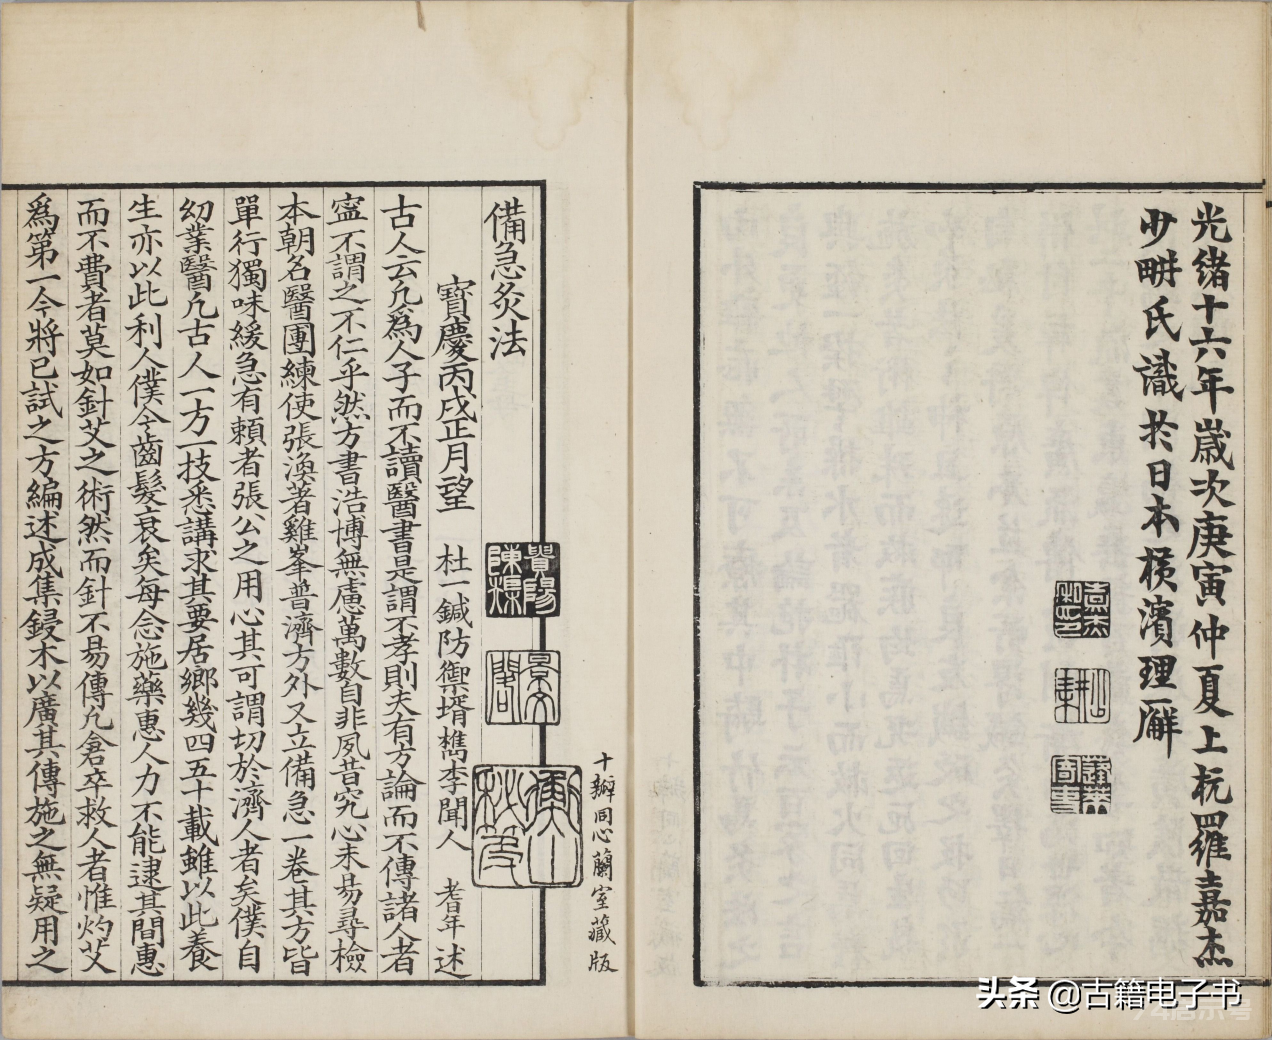 光緒十六年歲次庚寅仲夏上杭羅嘉杰
少畊氏識於日本橫濱理廨
十瓣同心蘭室藏版
貴陽
陳榘
備急灸法
寶慶丙戌正月望 杜一鍼防禦壻檇李聞人 耆年 述
古人云凢爲人子而不讀醫書是謂不孝則夫有方論而不傳諸人者
寍不謂之不仁乎然方書浩博無慮萬數自非夙昔究心未易尋檢
本朝名醫團練使張渙著雞峯普濟方外又立備急一卷其方皆
單行獨味緩急有賴者張公之用心其可謂切於濟人者矣僕自
幼業醫凢古人一方一技悉講求其要居鄉幾四五十載雖以此養
生亦以此利人僕今齒髮衰矣每念施藥惠人力不能逮其間惠
而不費者莫如針艾之術然而針不易傳凢倉卒救人者惟灼艾
爲第一今將已試之方編述成集鋟木以廣其傳施之無疑用之
头条 @古籍电子书